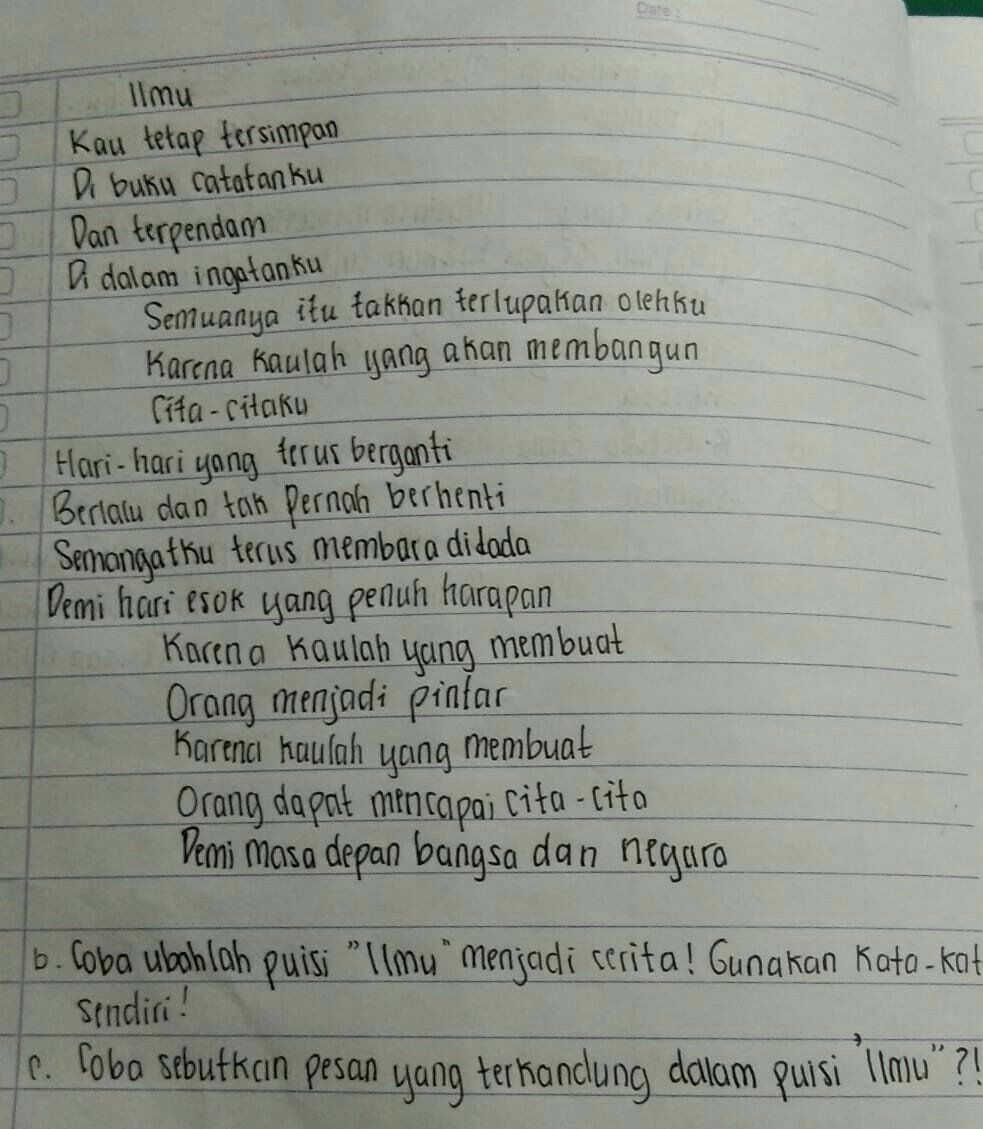 Date :
Ilmu
Kau tetap tersimpan
Di buku catatanku
Dan terpendam
Di dalam ingatanku
Semuanya itu takkan terlupakan olehku
Karena kaulah yang akan membangun
Cita-citaku
Hari-hari yang terus berganti
Berlalu dan tak pernah berhenti
Semangatku terus membara didada
Demi hari esok yang penuh harapan
Karena kaulah yang membuat
Orang menjadi pintar
Karena kaulah yang membuat
Orang dapat mencapai cita-cita
Demi masa depan bangsa dan negara
b. Coba ubahlah puisi "Ilmu" menjadi cerita! Gunakan kata-kat
sendiri!
c. Coba sebutkan pesan yang terkandung dalam puisi "Ilmu"?!